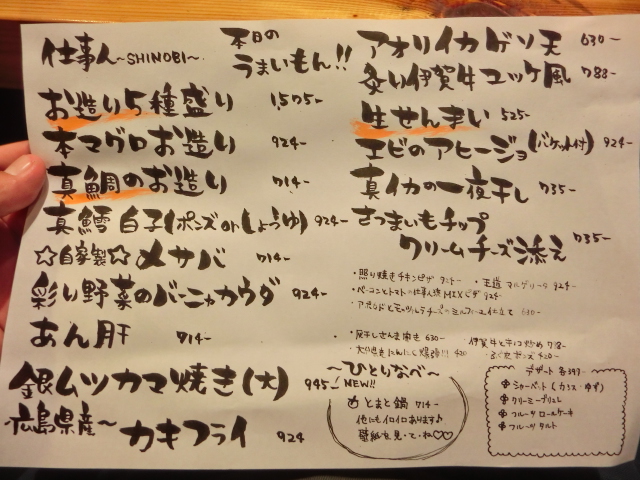 仕事人~SHINOBI~
本日の
うまいもん!!
お造り5種盛り 1,575-
本マグロお造り 924-
真鯛のお造り 714-
真鱈白子(ポンズorしょうゆ) 924-
☆自家製☆メサバ 714-
彩り野菜のバーニャカウダ 924-
あん肝 714-
銀ムツカマ焼き(大) 945-
広島県産~カキフライ 924
アオリイカゲソ天 630-
炙り伊賀牛ユッケ風 788-
生せんまい 525-
エビのアヒージョ(バケット付) 924-
真イカの一夜干し 735-
さつまいもチップ
クリームチーズ添え 735-
・照り焼きチキンピザ
・王道 マルゲリータ 924-
・ベーコンとトマトの仕事人流MIXピザ 924-
・アボカドとモッツァレラチーズのミルフィーユ仕立て 630-
630-
・伊賀牛と 炒め 788-
420
420-
~ひとりなべ~
NEW!!
とまと鍋 714-
他にもイロイロあります♪
壁紙を見・て・ね♡♡
デザート 各399-
シャーベット(カシス・ゆず)
クリームブリュレ
フルーツロールケーキ
フルーツタルト